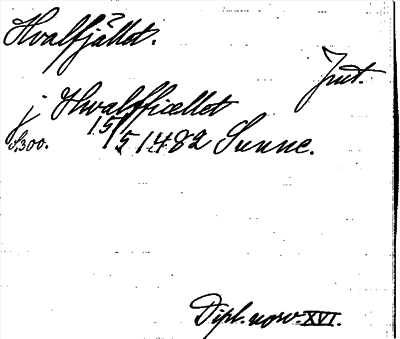 Hvalfjället.
Jmt.
j Hwalffiœllet
S. 300. 15/5 1482 Sunne.
Dipl. norv. XVI.